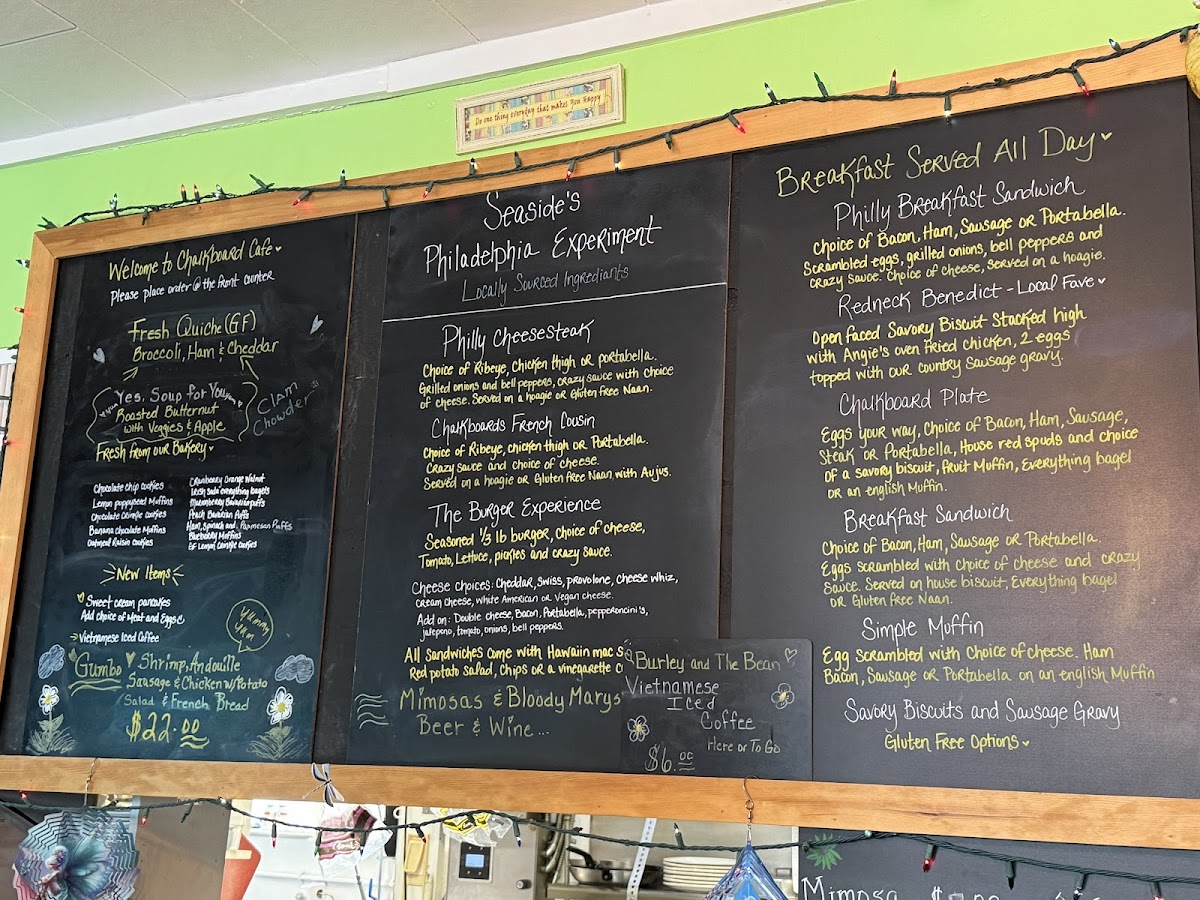 Do one thing everyday that makes you Happy
Welcome to Chalkboard Cafe
Please place order @ the front counter
Fresh Quiche (GF)
Broccoli, Ham & Cheddar
Yes, Soup for You
Roasted Butternut
with Veggies & Apple
Clam
Chowder
Fresh from our Bakery
Chocolate chip cookies
Lemon poppyseed Muffins
Chocolate Crinkle cookies
Banana chocolate Muffins
Oatmeal Raisin cookies
Cranberry Orange Walnut
Irish soda everything bagels
Marionberry Bavarian puffs
Peach Bavarian Puffs
Ham, Spinach and Parmesan Puffs
Blueberry Muffins
GF Lemon Crinkle cookies
New Items
Sweet cream pancakes
Add choice of Meat and Eggs
Vietnamese Iced Coffee
Yummy
Yum
Gumbo Shrimp, Andouille
Sausage & Chicken w/Potato
Salad & French Bread
$22.00
Seaside's
Philadelphia Experiment
Locally Sourced Ingrediants
Philly Cheesesteak
Choice of Ribeye, chicken thigh or portabella.
Grilled onions and bell peppers, crazy sauce with choice
of cheese. Served on a hoagie or Gluten free Naan.
Chalkboards French Cousin
Choice of Ribeye, chicken thigh or Portabella.
Crazy sauce and choice of cheese.
Served on a hoagie or Gluten free Naan with Aujus.
The Burger Experience
Seasoned 1/3 lb burger, choice of cheese,
Tomato, Lettuce, pickles and crazy sauce.
Cheese choices: Cheddar, Swiss, provolone, Cheese whiz,
cream cheese, white American or Vegan cheese.
Add on: Double cheese, Bacon, Portabella, pepperoncini's,
jalepeno, tomato, onions, bell peppers.
All Sandwiches come with Hawaiin mac s
Red potato salad, Chips or a vinegarette c
Mimosas & Bloody Marys
Beer & Wine...
Burley and The Bean
Vietnamese
Iced
Coffee
Here or To Go
$6.00
Breakfast Served All Day
Philly Breakfast Sandwich
Choice of Bacon, Ham, Sausage or Portabella.
Scrambled eggs, grilled onions, bell peppers and
crazy sauce. Choice of cheese, served on a hoagie.
Redneck Benedict - Local Fave
Open faced Savory Biscuit Stacked high
with Angie's oven fried chicken, 2 eggs
topped with our country sausage gravy.
Chalkboard Plate
Eggs your way, choice of Bacon, Ham, Sausage,
Steak or Portabella, House red spuds and choice
of a savory biscuit, Fruit Muffin, Everything bagel
or an english Muffin.
Breakfast Sandwich
Choice of Bacon, Ham, Sausage or Portabella.
Eggs scrambled with choice of cheese and crazy
Sauce. Served on house biscuit, Everything bagel
or Gluten free Naan.
Simple Muffin
Egg scrambled with choice of cheese. Ham
Bacon, Sausage or Portabella on an english Muffin
Savory Biscuits and Sausage Gravy
Gluten Free Options
Mimosa